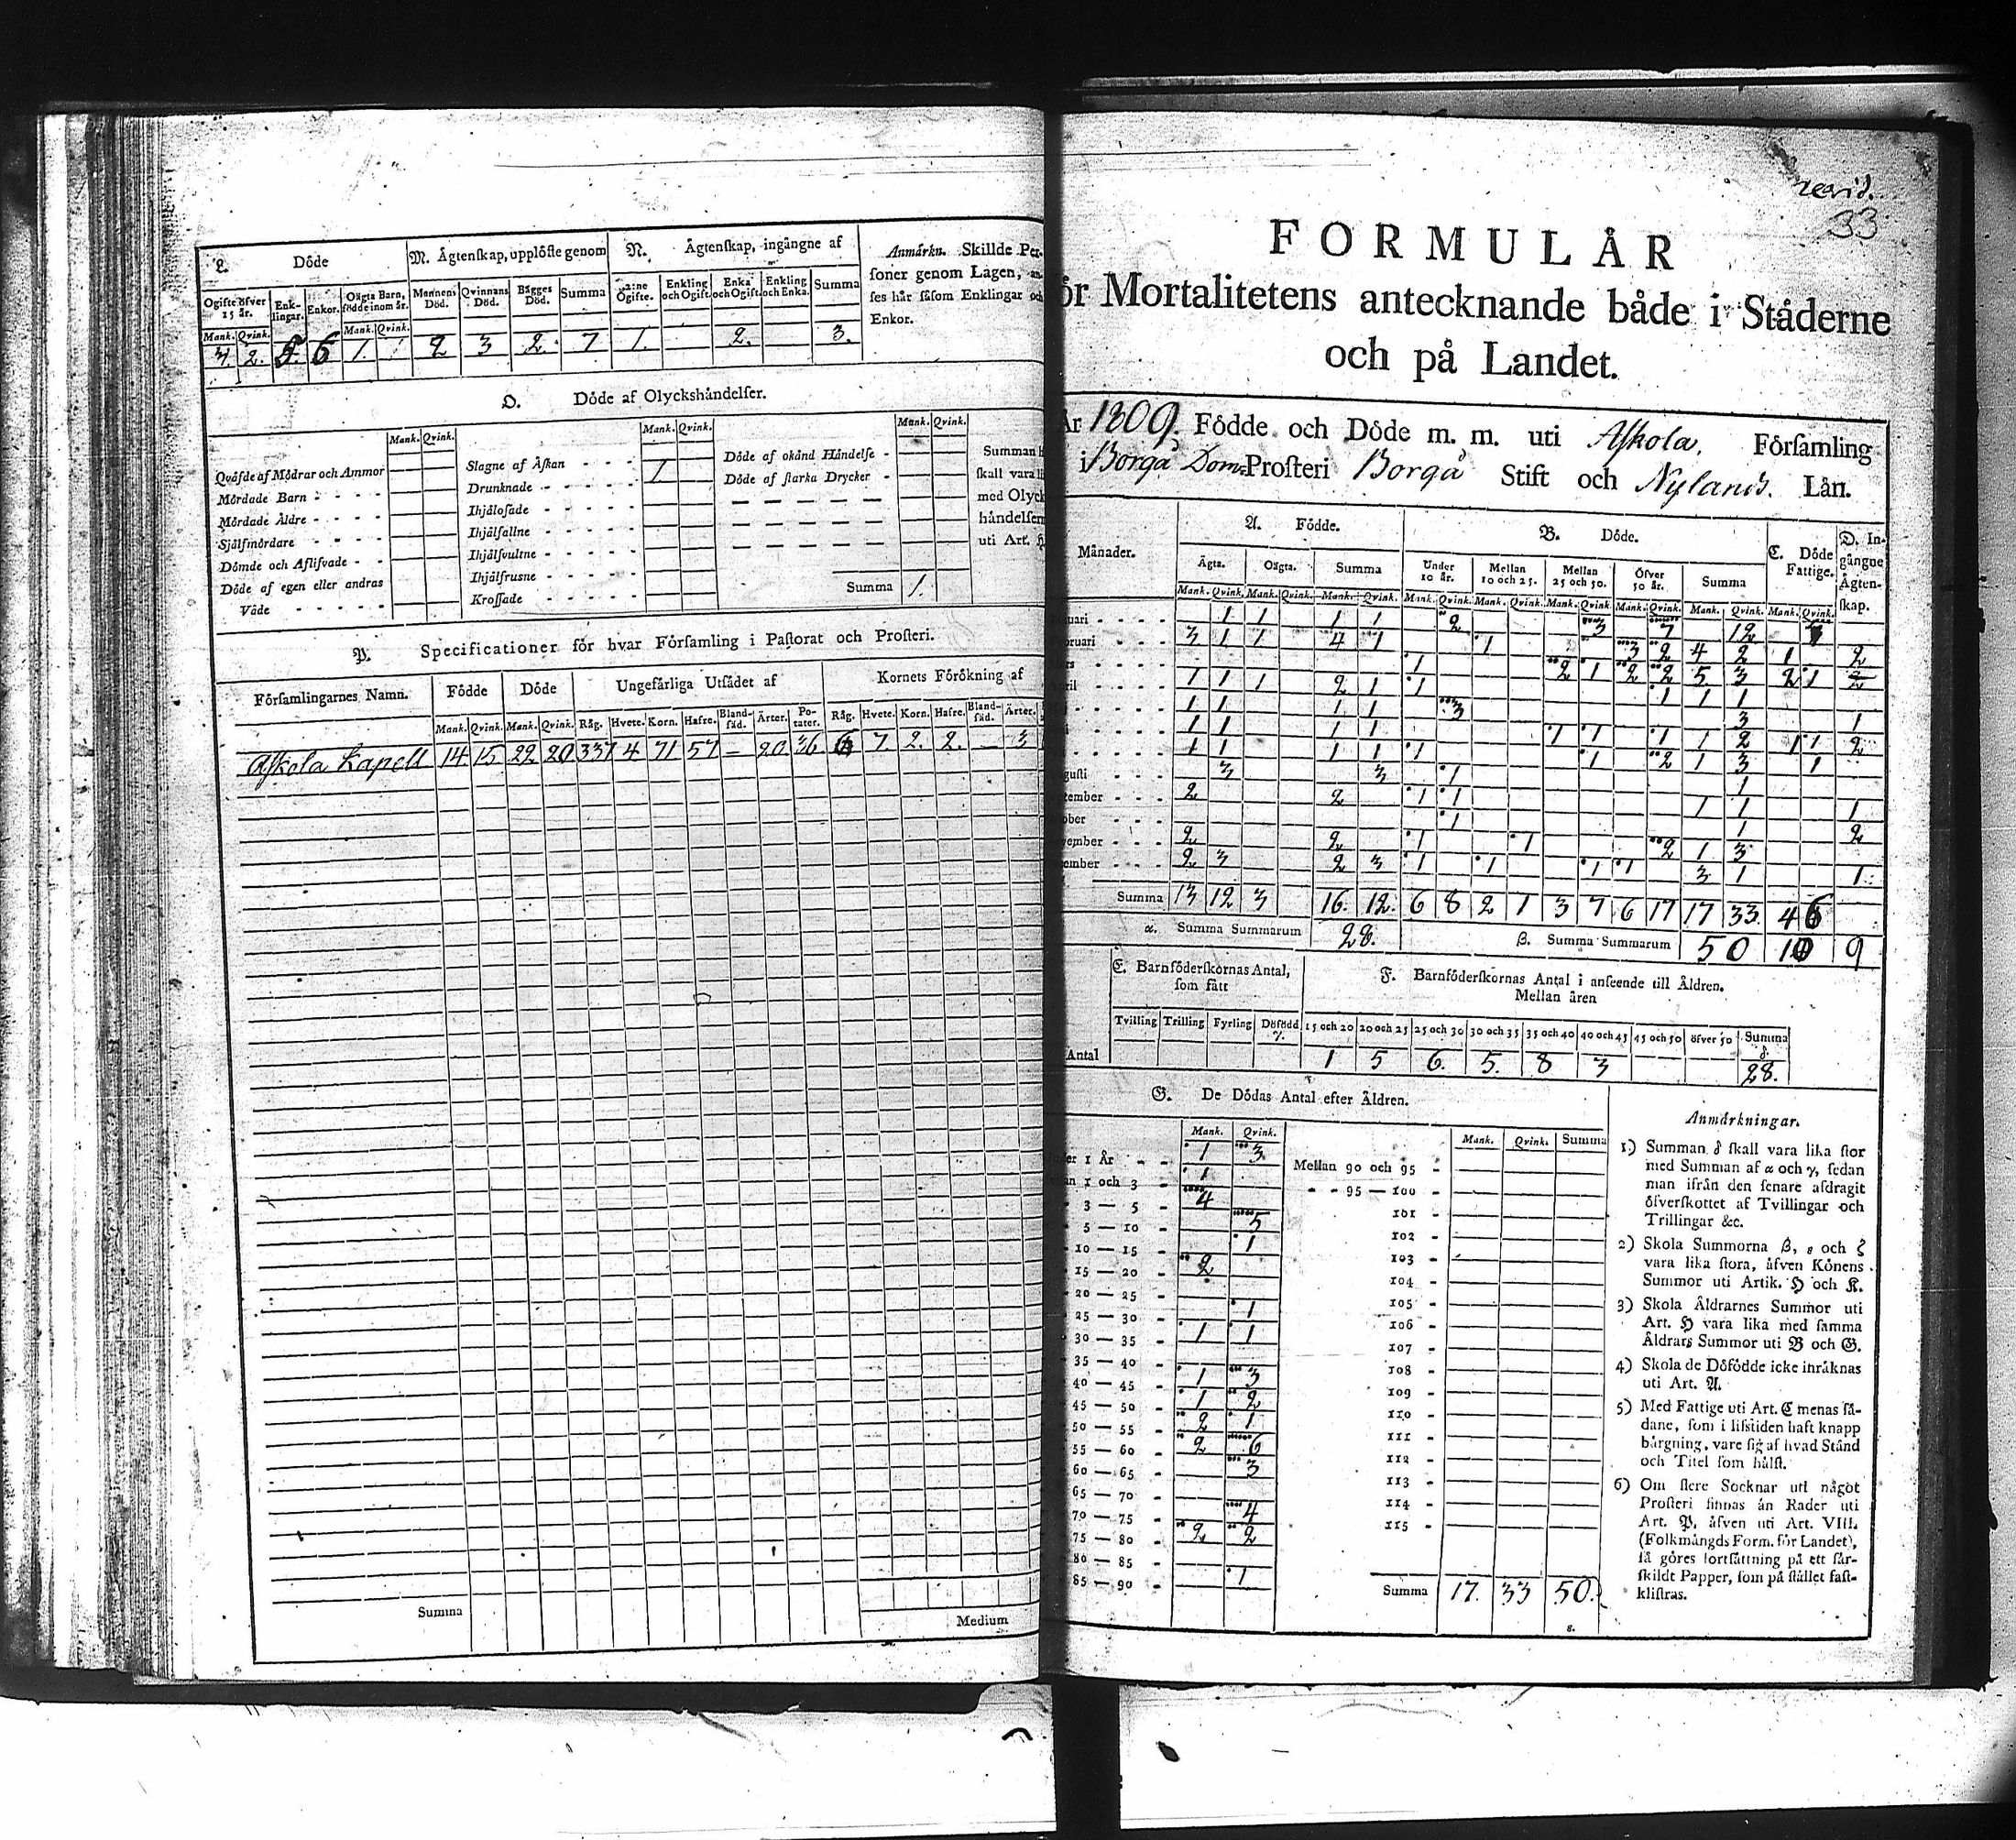 L. Döde
M. Ägtenskap, upplöste genom
N. Ägtenskap, ingångne af
Ogifte öfver 15 år. Enklingar. Enkor. Oägta Barn, födde inom år. Mannens Död. Qvinnans Död. Bägges Död. Summa 2:ne Ogifte. Enkling och Ogift. Enka och Ogift. Enkling och Enka. Summa
Mank. Qvink. Mank. Qvink.
2. 6 1. 2 3 2. 7 1. 2. 3.
Anmärkn. Skillde Per-
soner genom Lagen,
ses här såsom Enklingar och
Enkor.
O. Döde af Olyckshändelser.
Mank. Qvink. Mank. Qvink. Mank. Qvink.
Qväfde af Mödrar och Ammor
Mördade Barn
Mördade Äldre
Självmördare
Dömde och Aflifvade
Döde af egen eller andras
Våde
Slagne af Åskan
Drunknade 1
Ihjälosade
Ihjälfallne
Ihjälsvultne
Ihjälfrusne
Krossade
Döde af okänd Händelse
Döde af starka Drycker
Summa 1.
Summan
skall vara
med Olyck
händelsen
uti Art. H
P. Specificationer för hvar Församling i Pastorat och Prosteri.
Församlingarnes Namn. Födde Döde Ungefärliga Utsädet af Kornets Förökning af
Mank. Qvink. Mank. Qvink. Råg. Hvete. Korn. Hafre. Bland-säd. Ärter. Po-tater. Råg. Hvete. Korn. Hafre. Bland-säd. Ärter.
Askola Kapell 14 15 22 20 337 4 71 57 — 20 36 6 7. 2. 2. — 3
Summa
Medium
revid.
33
FORMULÅR
ör Mortalitetens antecknande både i Ståderne
och på Landet.
År 1809. Födde och Döde m. m. uti Askola, Församling
i Borgå Dom=Prosteri Borgå Stift och Nylands. Län.
Månader. A. Födde. B. Döde. C. Döde Fattige. D. In-gångne Ägten-skap.
Ägta. Oägta. Summa Under 10 år. Mellan 10 och 25. Mellan 25 och 50. Öfver 50 år. Summa
Mank. Qvink. Mank. Qvink. Mank. Qvink. Mank. Qvink. Mank. Qvink. Mank. Qvink. Mank. Qvink. Mank. Qvink. Mank. Qvink.
uari 1 1 1 1 2 3 7 12
bruari 3 1 1 4 1 1 3 2 4 2 1 2
rs 1 2 1 2 2 5 3 2 1 2
ril 1 1 1 2 1 1 1 1 1
1 1 1 1 3 3 1
1 1 1 1 1 1 1 1 2 1 1 2
1 1 1 1 1 1 2 1 3 1
gusti 3 3 1 1
tember 2 2 1 1 1 1 1
ober 1 1 2
vember 2 2 1 1 2 1 3
ember 2 3 2 3 1 1 1 1 3 1 1
Summa 13 12 3 16. 12. 6 8 2 1 3 7 6 17 17 33. 4 6
α. Summa Summarum 28. β. Summa Summarum 50 10 9
E. Barnföderskornas Antal, som fått
F. Barnföderskornas Antal i anseende till Åldren.
Mellan åren
Tvilling Trilling Fyrling Dödfödd γ. 15 och 20 20 och 25 25 och 30 30 och 35 35 och 40 40 och 45 45 och 50 öfver 50 Summa δ.
Antal 1 5 6. 5. 8 3 28.
G. De Dödas Antal efter Åldren.
Mank. Qvink. Mank. Qvink. Summa
der 1 År 1 3
n 1 och 3 1
3 — 5 4
5 — 10 5
10 — 15 1
15 — 20 2
20 — 25
25 — 30 1
30 — 35 1 1
35 — 40
40 — 45 1 3
45 — 50 1 2
50 — 55 2 1
55 — 60 2 6
60 — 65 3
65 — 70
70 — 75 4
75 — 80 2 2
80 — 85
85 — 90 1
Mellan 90 och 95
95 — 100
101
102
103
104
105
106
107
108
109
110
111
112
113
114
115
Summa 17. 33 50.
ε.
Anmärkningar.
1) Summan δ skall vara lika stor
med Summan af α och γ, sedan
man ifrån den senare afdragit
öfverskottet af Tvillingar och
Trillingar &c.
2) Skola Summorna β, ε och ζ
vara lika stora, äfven Könens
Summor uti Artik. H och K.
3) Skola Åldrarnes Summor uti
Art. H vara lika med samma
Åldrars Summor uti B och G.
4) Skola de Döfödde icke inräknas
uti Art. A.
5) Med Fattige uti Art. C menas så-
dane, som i lifstiden haft knapp
bärgning, vare sig af hvad Stånd
och Titel som hälst.
6) Om flere Socknar uti något
Prosteri finnas än Rader uti
Art. P, äfven uti Art. VIII.
(Folkmängds Form. för Landet),
så göres fortsättning på ett sär-
skildt Papper, som på stället fast-
klistras.